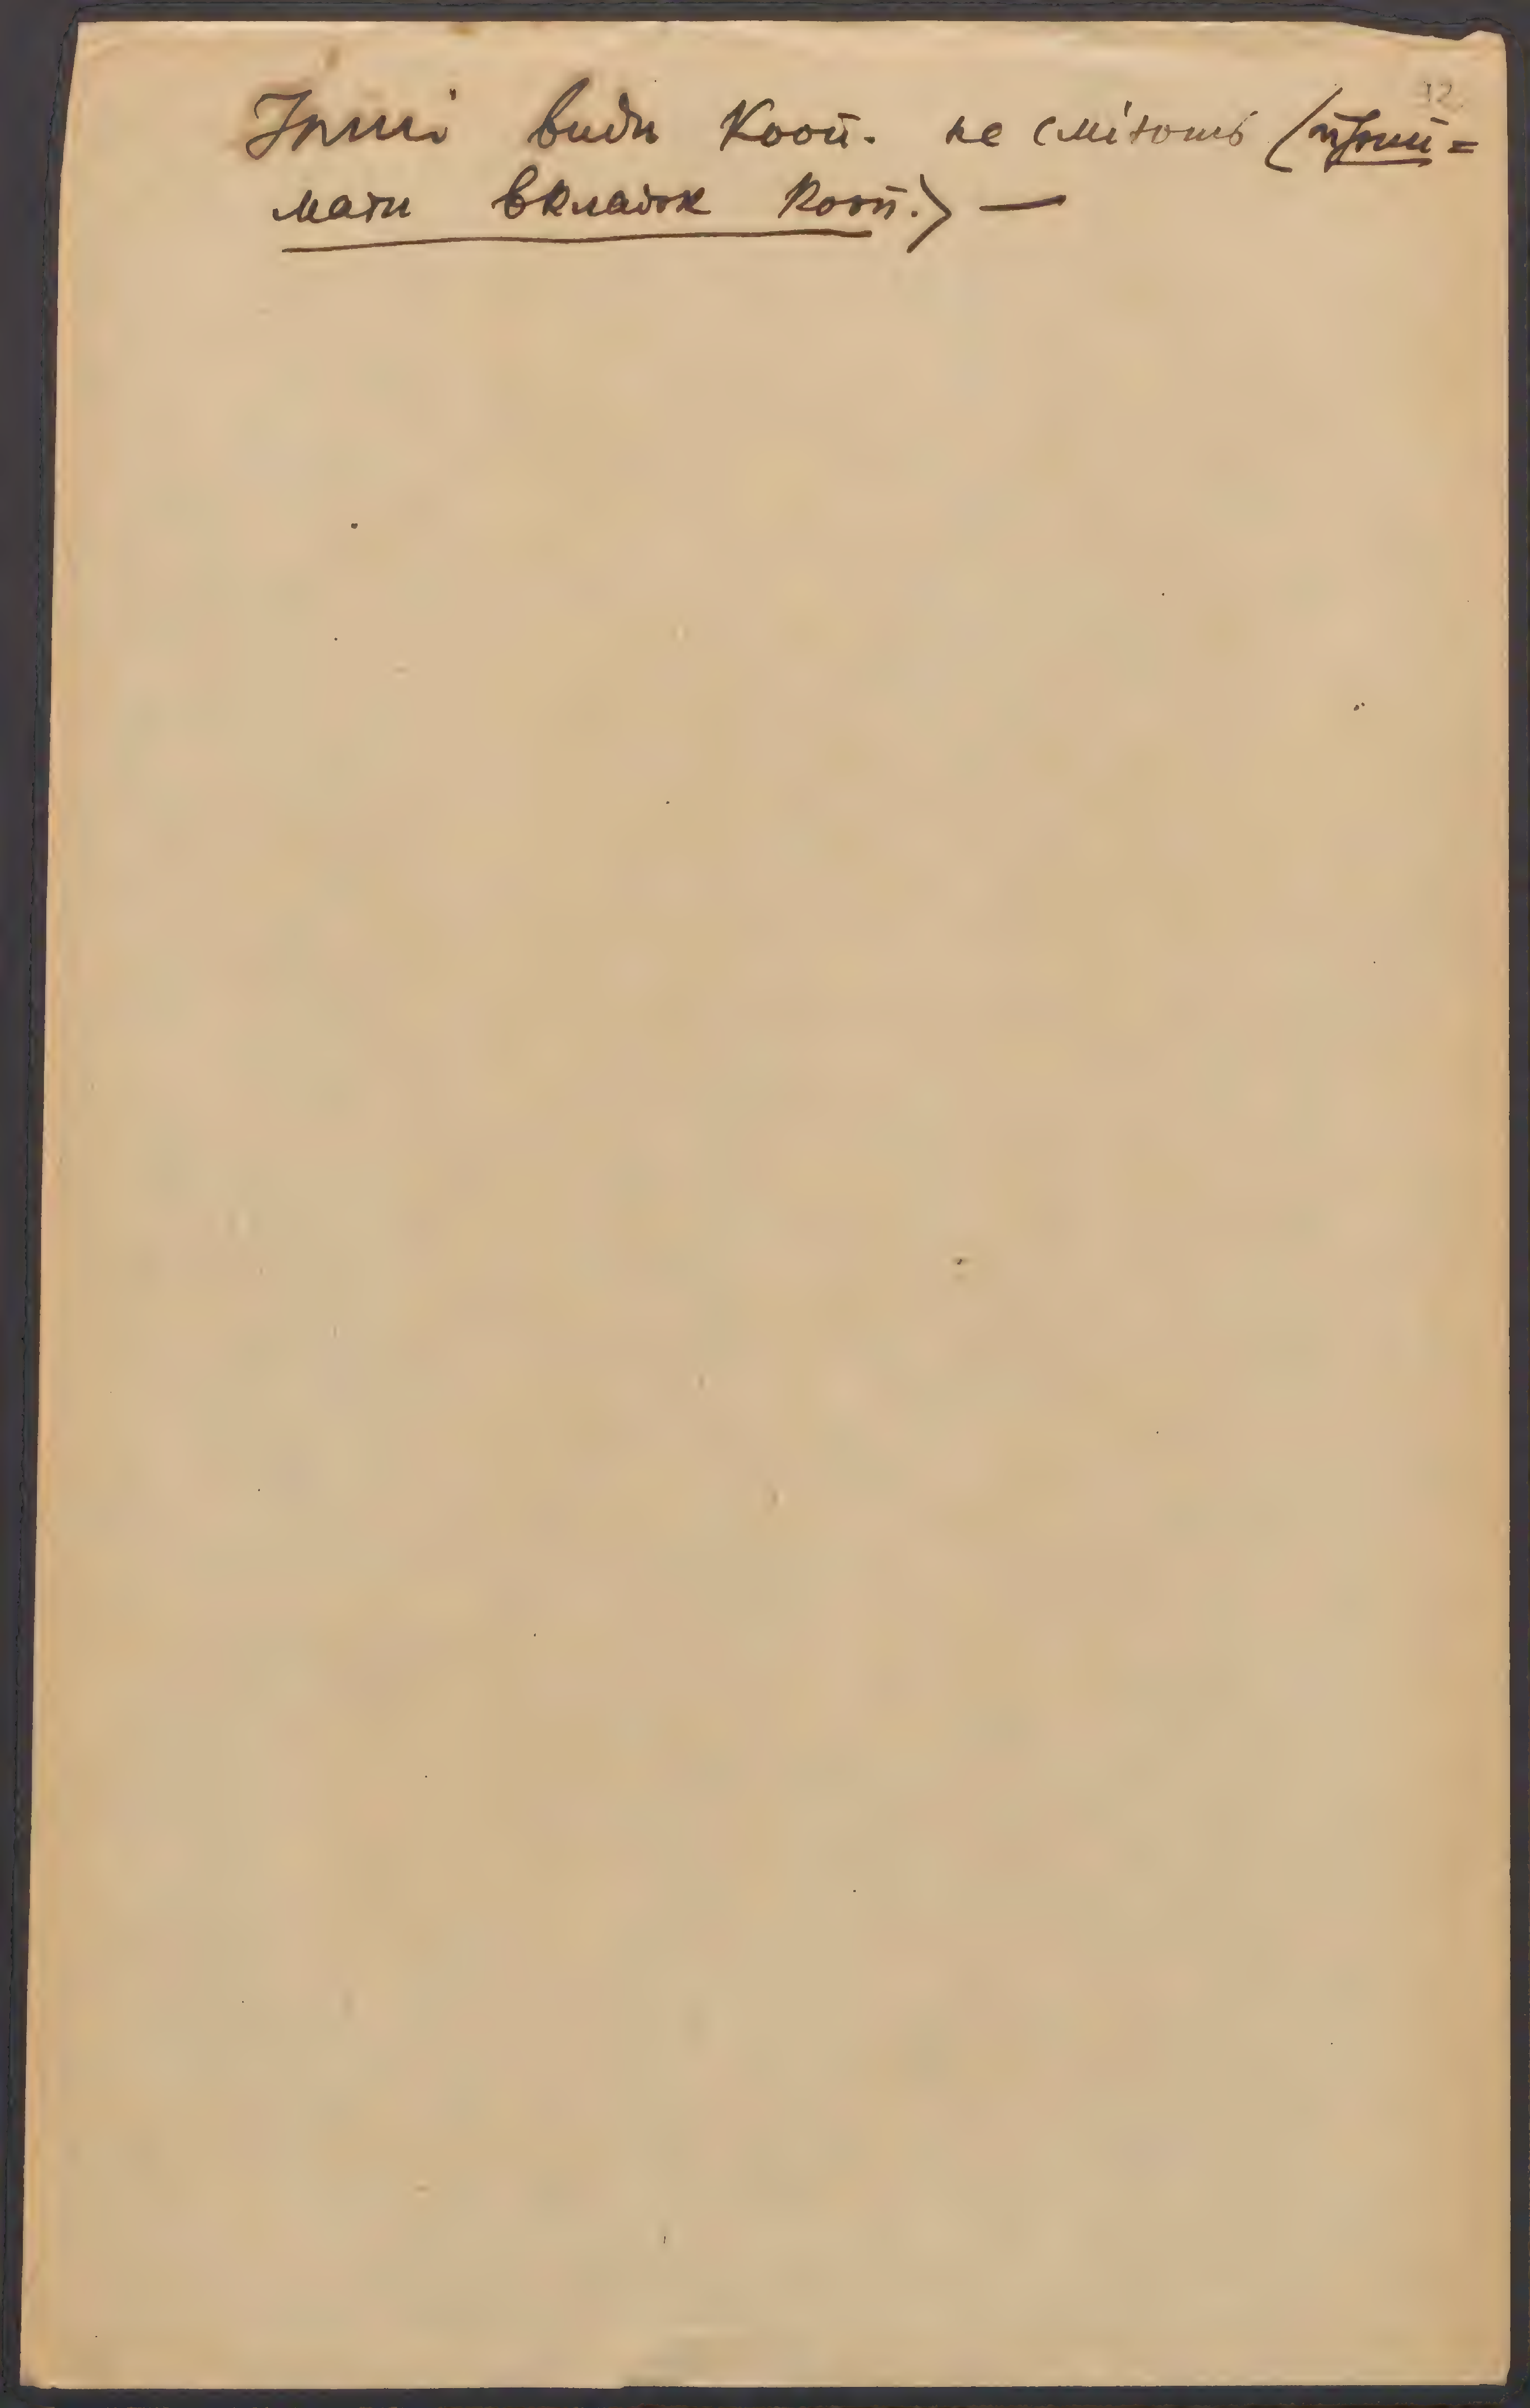 12
Інші види Кооп. не сміють (прий=
мати вкладок Кооп.) —